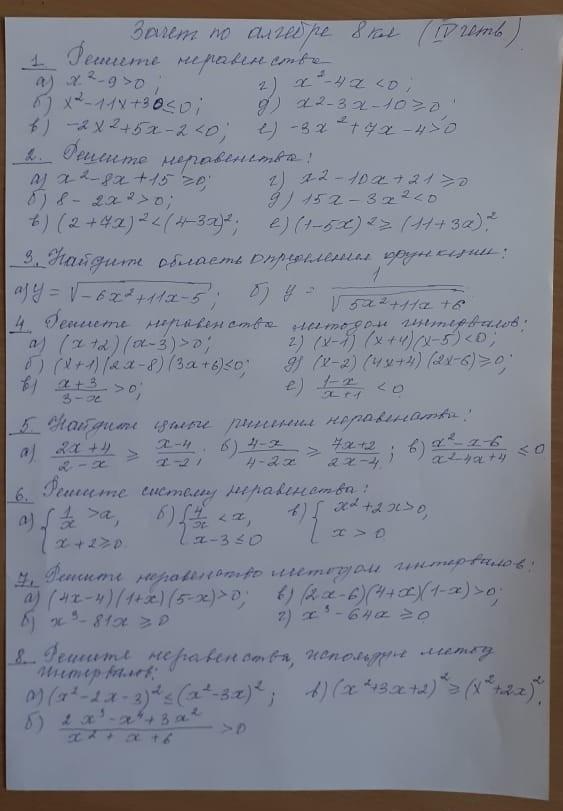 Зачет по алгебре 8 кл (IV четв)
1. Решите неравенства
а) x²-9>0; г) x²-4x<0;
б) x²-11x+30≤0; д) x2-3x-10≥0;
в) -2x²+5x-2<0; е) -3x²+7x-4>0
2. Решите неравенства:
а) x²-8x+15≥0; г) x2-10x+21≥0
б) 8-2x²>0; д) 15x-3x²<0
в) (2+7x)²<(4-3x)²; е) (1-5x)²≥(11+3x)².
3. Найдите область определения функции:
а) y=√(-6x²+11x-5); б) y = 1/√(5x²+11x+6)
4. Решите неравенства методом интервалов:
а) (x+2)(x-3)>0; г) (x-1)(x+4)(x-5)<0;
б) (x+1)(2x-8)(3x+6)≤0; д) (x-2)(4x+4)(2x-6)≥0;
в) (x+3)/(3-x) >0; е) (1-x)/(x+1) <0
5. Найдите целые решения неравенства:
а) (2x+4)/(2-x) ≥ (x-4)/(x-2); б) (4-x)/(4-2x) ≥ (7x+2)/(2x-4); в) (x²-x-6)/(x²-4x+4) ≤0
6. Решите систему неравенства:
а) { 1/x >x, б) { 4/x <x, в) { x²+2x>0,
x+2≥0 x-3≤0 x>0
7. Решите неравенство методом интервалов:
а) (4x-4)(1+x)(5-x)>0; в) (2x-6)(4+x)(1-x)>0;
б) x³-81x≥0 г) x³-64x≥0
8. Решите неравенства, используя метод
интервалов:
а) (x²-2x-3)²≤(x²-3x)²; в) (x²+3x+2)²≥(x²+2x)².
б) (2x³-x⁴+3x²)/(x²+x+6) >0